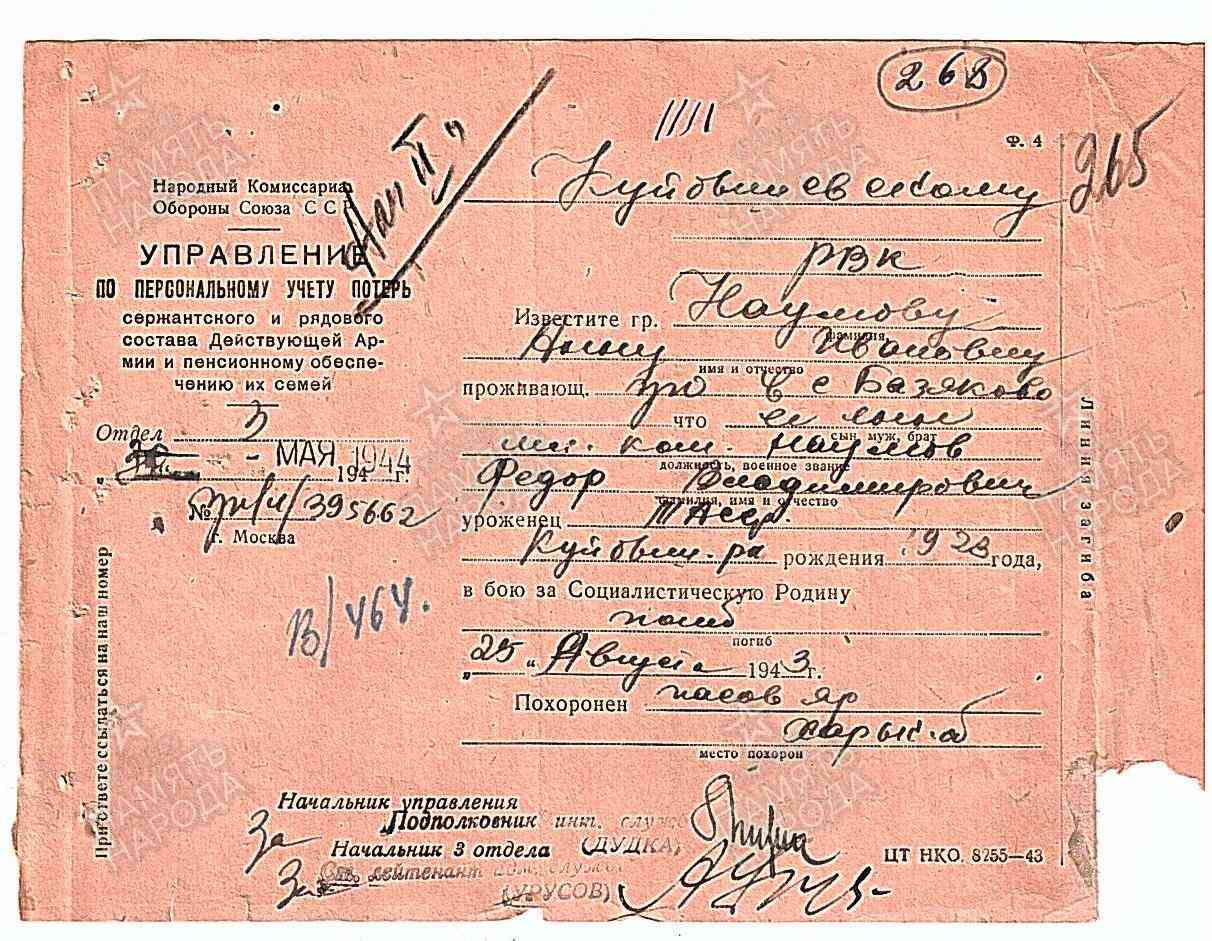 268
265
Ф. 4
Народный Комиссариа
Обороны Союза ССР
УПРАВЛЕНИЕ
ПО ПЕРСОНАЛЬНОМУ УЧЕТУ ПОТЕРЬ
сержантского и рядового
состава Действующей Ар-
мии и пенсионному обеспе-
чению их семей
Отдел 3
- МАЯ 1944
194 г.
№ 395662
г. Москва
В/464.
При ответе ссылаться на наш номер
Куйбышевскому
РВК
Известите гр. Наумову
фамилия
Анну Ивановну
имя и отчество
проживающ. в с Базяково
что ее сын
сын, муж, брат
мл. ком. Наумов
должность, военное звание
Федор Владимирович
фамилия, имя и отчество
уроженец ТАССР.
Куйбыш. р-а рождения 1923 года,
в бою за Социалистическую Родину
погиб
погиб
„25„ Августа 1943 г.
Похоронен
Харьк. об
место похорон
Линия загиба
Начальник управления
За Подполковник инт. служб
(ДУДКА)
Начальник 3 отдела
За Ст. лейтенант адм. служб
(УРУСОВ)
ЦТ НКО. 8255—43
ПАМЯТЬ НАРОДА